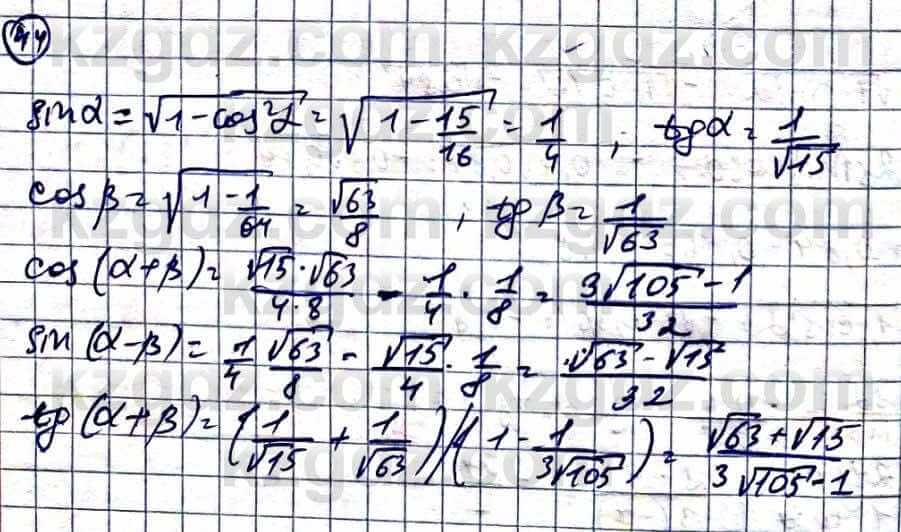 44
sin α = √(1 - cos²α) = √(1 - 15/16) = 1/4 ; tg α = 1/√15
cos β = √(1 - 1/64) = √63/8 ; tg β = 1/√63
cos (α+β) = √15·√63/4·8 - 1/4 · 1/8 = 3√105 - 1/32
sin (α-β) = 1/4 √63/8 - √15/4 · 1/8 = √63 - √15/32
tg (α+β) = (1/√15 + 1/√63)/(1 - 1/3√105) = √63 + √15/3√105 - 1
kzgdz.com kzgdz.com